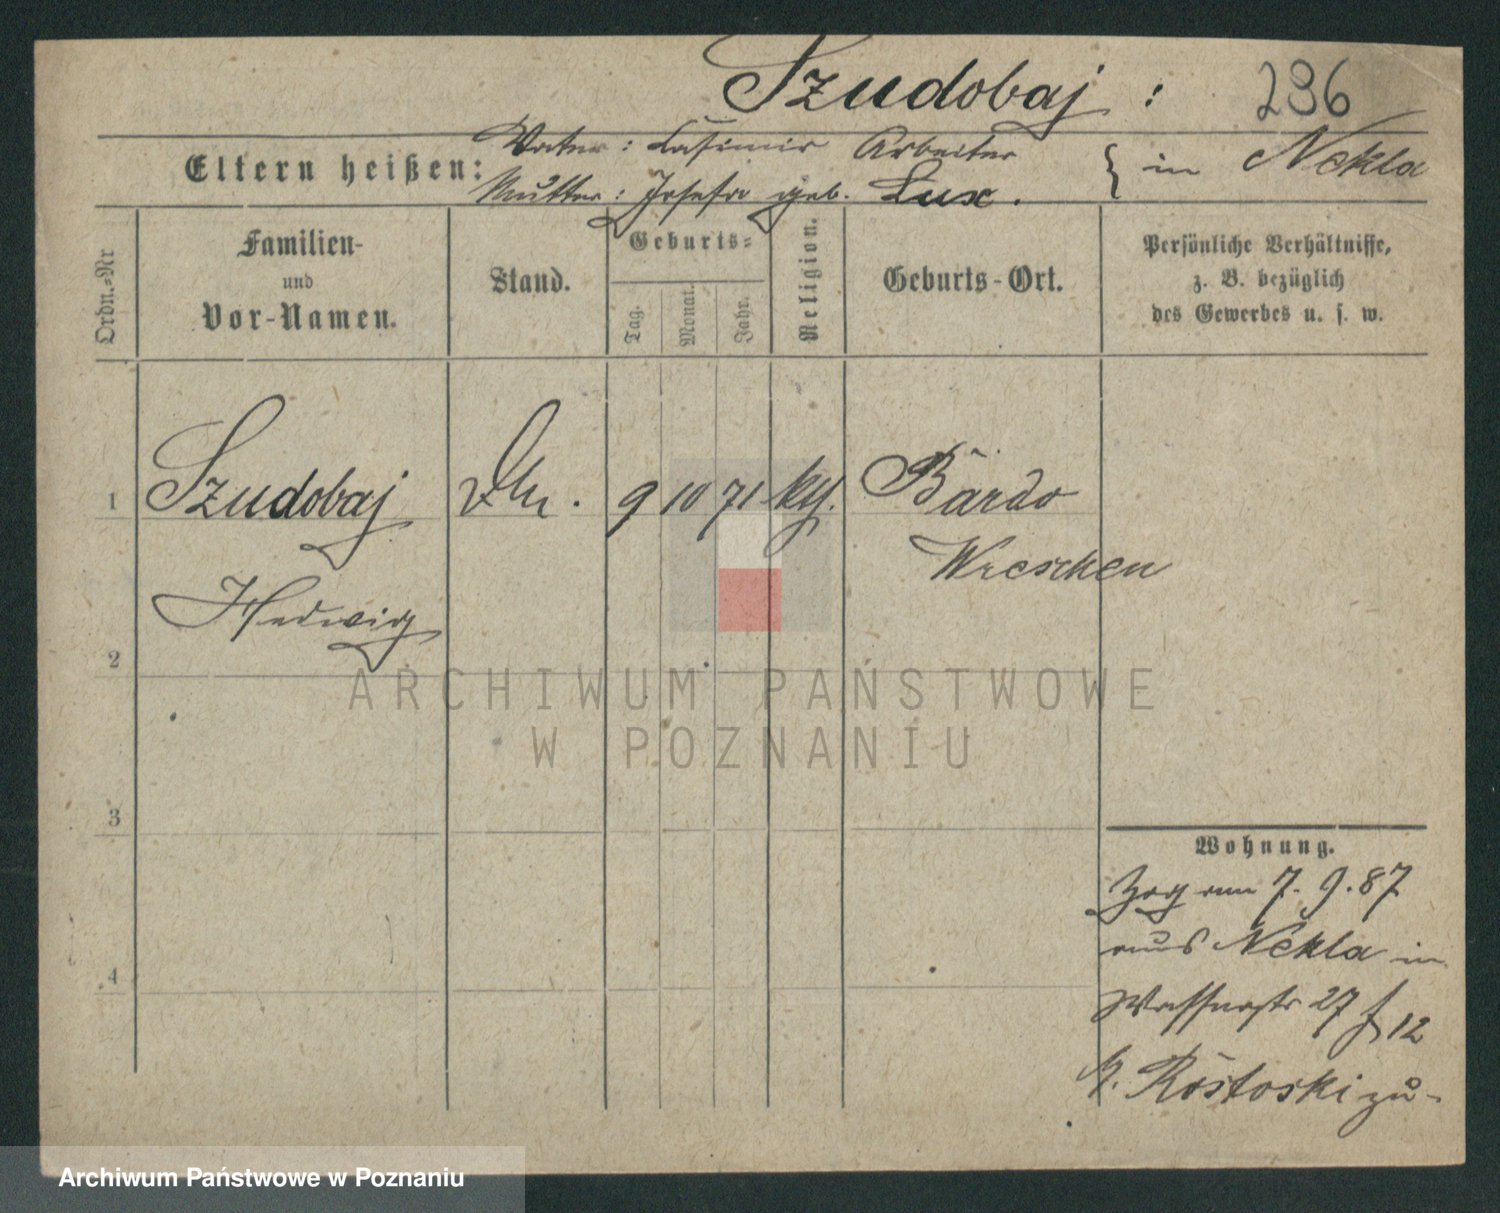 Szudobaj : 296
Eltern heißen: Vater : Casimir Arbeiter
Mutter : Josefa geb. Lux . } in Nekla
Ordn.=Nr
Familien-
und
Vor-Namen.
Stand.
Geburts=
Tag.
Monat.
Jahr.
Religion.
Geburts-Ort.
Persönliche Verhältnisse,
z. B. bezüglich
des Gewerbes u. s. w.
1 Szudobaj 9 10 71 kth. Bardo
Wreschen
Hedwig
2
3
4
Wohnung.
Zog am 7. 9. 87
aus Nekla in
27 12
Rostoski zu-
ARCHIWUM PAŃSTWOWE
W POZNANIU
Archiwum Państwowe w Poznaniu